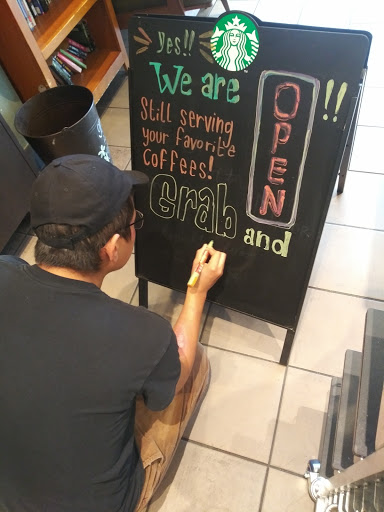 Yes!!
We are OPEN!!
Still serving
your favorite
coffees!
Grab and